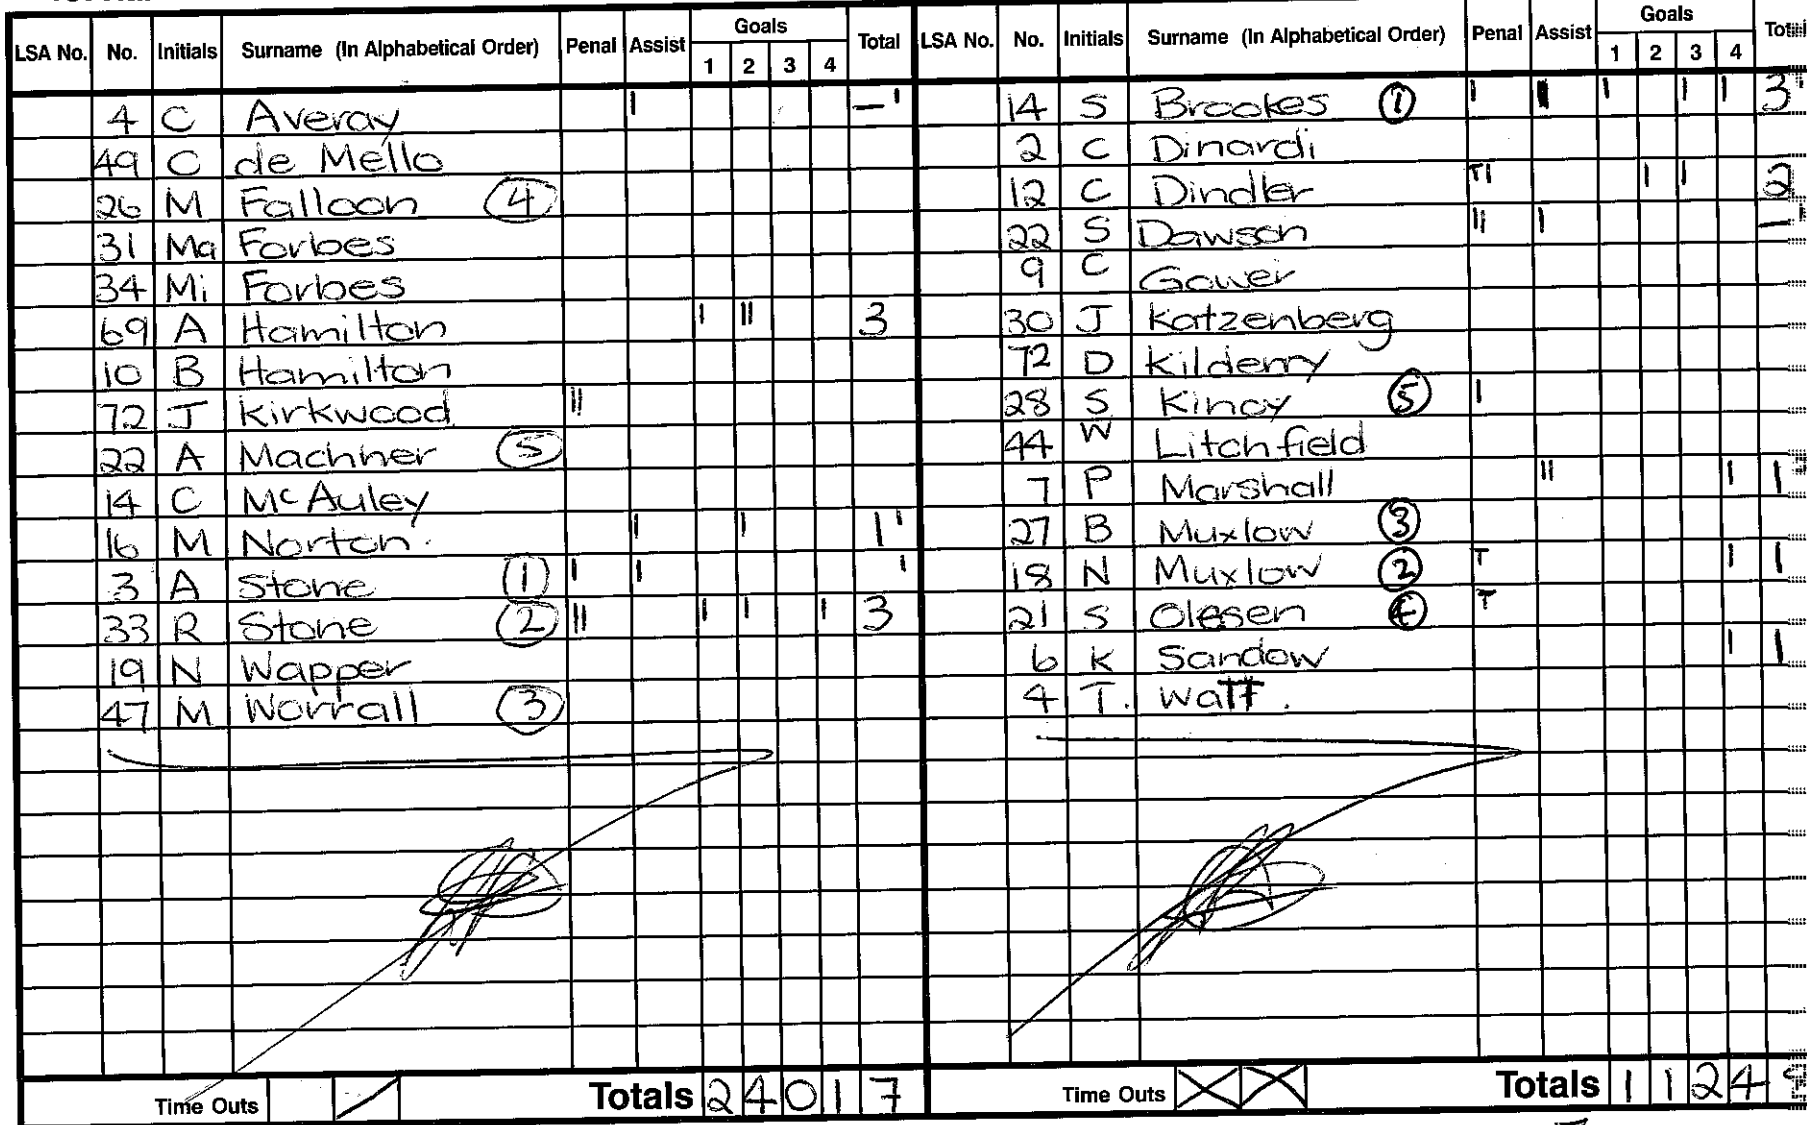 LSA No. No. Initials Surname (In Alphabetical Order) Penal Assist Goals 1 2 3 4 Total
4 C Averay I — '
49 C de Mello
26 M Falloon 4
31 Ma Forbes
34 Mi Forbes
69 A Hamilton I II 3
10 B Hamilton
72 J Kirkwood II
22 A Machner 5
14 C McAuley
16 M Norton. I I 1 '
3 A Stone 1 I I '
33 R Stone 2 II I I I 3
19 N Wapper
47 M Worrall 3
Time Outs / Totals 2 4 0 1 7
LSA No. No. Initials Surname (In Alphabetical Order) Penal Assist Goals 1 2 3 4 Total
14 S Brookes 1 I I I I I 3
2 C Dinardi
12 C Dindler TI I I 2
22 S Dawson II I —
9 C Gower
30 J Katzenberg
72 D Kilderry
28 S Kinoy 5 I
44 W Litchfield
7 P Marshall II I 1
27 B Muxlow 3
18 N Muxlow 2 T I 1
21 S Olesen 4 T
6 K Sandow I 1
4 T. Watt.
Time Outs X X Totals 1 1 2 4